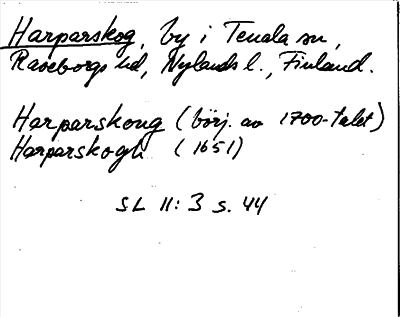 Harparskog, by i Tenala sn,
Raseborgs hd, Nylands l., Finland.
Harparskoug (börj. av 1700-talet)
Harparskogh (1651)
SL 11:3 s. 44